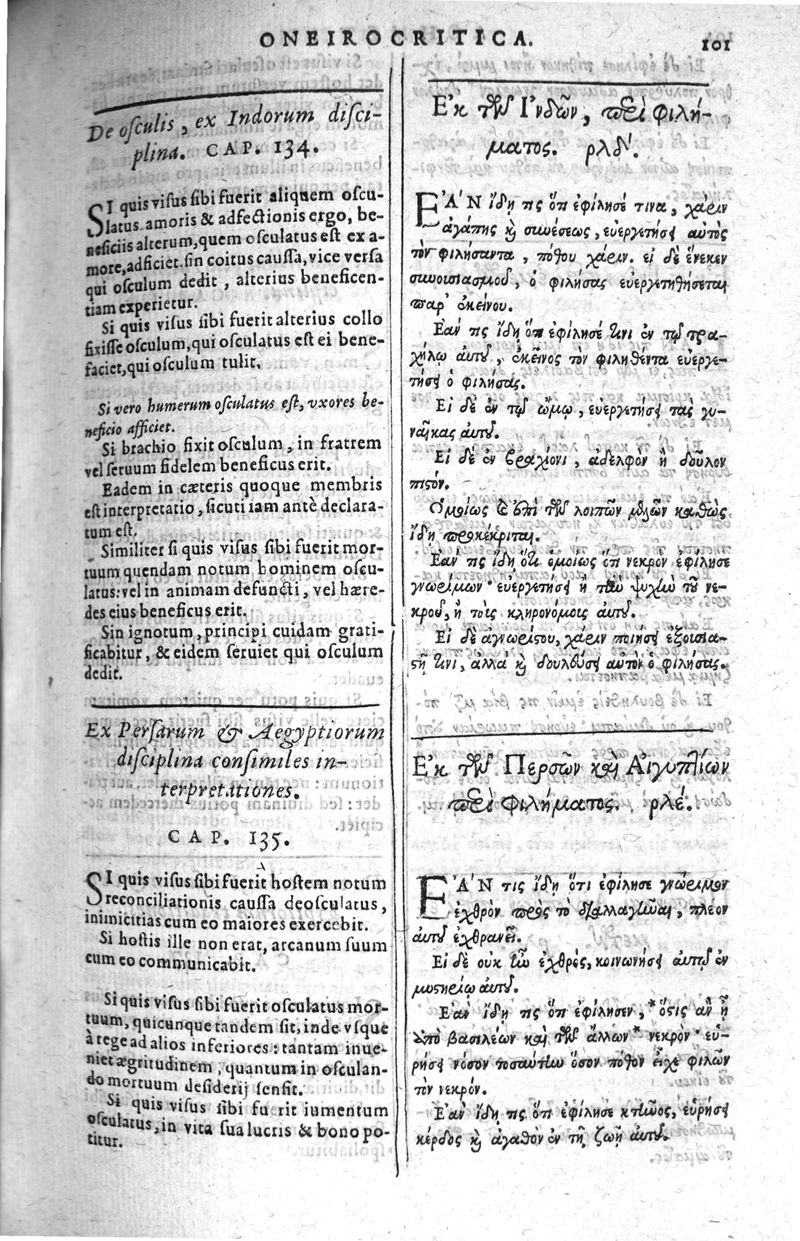 ONEIROCRITICA.
101
De osculis, ex Indorum disci-
plina. CAP. 134.
SI quis visus sibi fuerit aliquem oscu-
latus amoris & adfectionis ergo, be-
neficiis alterum, quem osculatus est ex a-
more, adficiet. sin coitus caussa, vice versa
qui osculum dedit, alterius beneficen-
tiam experietur.
Si quis visus sibi fuerit alterius collo
fixisse osculum, qui osculatus est ei bene-
faciet, qui osculum tulit.
Si vero humerum osculatus est, vxores be-
neficio afficiet.
Si brachio fixit osculum, in fratrem
vel seruum fidelem beneficus erit.
Eadem in cæteris quoque membris
est interpretatio, sicuti iam antè declara-
tum est.
Similiter si quis visus sibi fuerit mor-
tuum quendam notum hominem oscu-
latus: vel in animam defuncti, vel hære-
des eius beneficus erit.
Sin ignotum, principi cuidam grati-
ficabitur, & eidem seruiet qui osculum
dedit.
Ex Persarum & Aegyptiorum
disciplina consimiles in-
terpretationes.
CAP. 135.
SI quis visus sibi fuerit hostem notum
reconciliationis caussa deosculatus,
inimicitias cum eo maiores exercebit.
Si hostis ille non erat, arcanum suum
cum eo communicabit.
Si quis visus sibi fuerit osculatus mor-
tuum, quicunque tandem sit, inde vsque
à rege ad alios inferiores: tantam inue-
niet ægritudinem, quantum in osculan-
do mortuum desiderij sensit.
Si quis visus sibi fuerit iumentum
osculatus, in vita sua lucris & bono po-
titur.
Ἐκ τῶν Ἰνδῶν, περὶ φιλή-
ματος. ρλδ'.
ἘΑΝ ἴδῃ τις ὅτι ἐφίλησέ τινα, χάριν
ἀγάπης καὶ συνέσεως, εὐεργετήσει αὐτὸς
τὸν φιλήσαντα, πόθου χάριν. εἰ δὲ ἕνεκεν
συνουσιασμοῦ, ὁ φιλήσας εὐεργετηθήσεται
παρ' ἐκείνου.
Ἐάν τις ἴδῃ ὅτι ἐφίλησέ τινι ἐν τῷ τρα-
χήλῳ αὐτοῦ, ἐκεῖνος τὸν φιληθέντα εὐεργε-
τήσει ὁ φιλήσας.
Εἰ δὲ ἐν τῷ ὤμῳ, εὐεργετήσει τὰς γυ-
ναῖκας αὐτοῦ.
Εἰ δὲ ἐν βραχίονι, ἀδελφὸν ἢ δοῦλον
πιστόν.
Ὁμοίως καὶ ἐπὶ τῶν λοιπῶν μελῶν καθὼς
ἤδη προκέκριται.
Ἐάν τις ἴδῃ ὅτι ὁμοίως ὅτι νεκρὸν ἐφίλησε
γνωρίμων· εὐεργετήσει ἢ τὴν ψυχὴν τοῦ νε-
κροῦ, ἢ τοῖς κληρονόμοις αὐτοῦ.
Εἰ δὲ ἀγνωρίστου, χάριν ποιήσει ἐξουσια-
στῇ τινι, ἀλλὰ καὶ δουλεύσει αὐτὸν ὁ φιλήσας.
Ἐκ τῶν Περσῶν καὶ Αἰγυπτίων
περὶ φιλήματος. ρλέ.
ἘΑΝ τις ἴδῃ ὅτι ἐφίλησε γνώριμον
ἐχθρὸν πρὸς τὸ διαλλαγῆναι, πλέον
αὐτοῦ ἐχθρανεῖ.
Εἰ δὲ οὐκ ἦν ἐχθρός, κοινωνήσει αὐτῷ ἐν
μυστηρίῳ αὐτοῦ.
Ἐὰν ἴδῃ τις ὅτι ἐφίλησεν, *ὅστις ἂν ᾖ
ἀπὸ βασιλέων καὶ τῶν ἄλλων* νεκρόν· εὑ-
ρήσει νόσον τοσαύτην ὅσον πόθον εἶχε φιλῶν
τὸν νεκρόν.
Ἐὰν ἴδῃ τις ὅτι ἐφίλησε κτῆνος, εὑρήσει
κέρδος καὶ ἀγαθὸν ἐν τῇ ζωῇ αὐτοῦ.